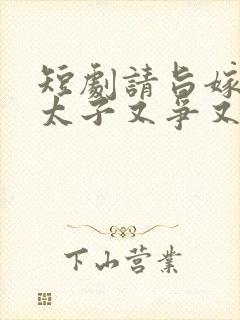 短劇請旨嫁
太子又爭又
下山营業